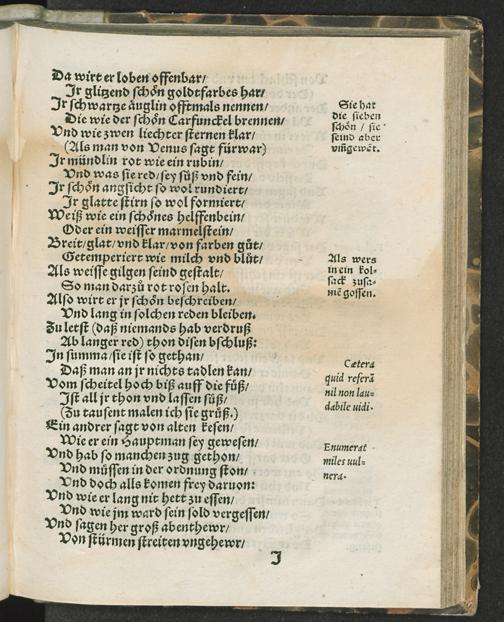 Da wirt er loben offenbar/
Jr glitzend schön goldtfarbes har/
Jr schwarze äuglin offtmals nennen/
Die wie der schön Carfunckel brennen/
Vnd wie zwen liechter sternen klar/
(Als man von Venus sagt fürwar)
Jr mündlin rot wie ein rubin/
Vnd was sie red/sey süß vnd fein/
Jr schön angsicht so wol rundiert/
Jr glatte stirn so wol formiert/
Weiß wie ein schönes helffenbein/
Oder ein weisser marmelstein/
Breit/glat/vnd klar/von farben güt/
Getemperiert wie milch vnd blüt/
Als weisse gilgen seind gestalt/
So man darzů rot rosen halt.
Also wirt er jr schön beschreiben/
Vnd lang in solchen reden bleiben.
Zu letst (daß niemands hab verdruß
Ab langer red) thon disen bschluß:
Jn summa/sie ist so gethan/
Daß man an jr nichts tadlen kan/
Vom scheitel hoch biß auff die füß/
Jst all jr thon vnd lassen süß/
(Zu tausent malen ich sie grüß.)
Ein andrer sagt von alten kesen/
Wie er ein Hauptman sey gewesen/
Vnd hab so manchen zug gethon/
Vnd müssen in der ordnung ston/
Vnd doch alls komen frey daruon:
Vnd wie er lang nit hett zu essen/
Vnd wie jm ward sein sold vergessen/
Vnd sagen her groß abenthewr/
Von stürmen streiten vngehewr/
J
Sie hat
die sieben
schön / sie
seind aber
vngewēt.
Als wers
in ein kol-
sack zusa-
mē gossen.
Cætera
quid referā
nil non lau-
dabile uidi.
Enumerat
miles uul-
nera.